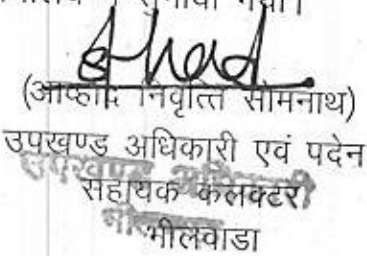 सुनाया गया।
(आव्हाद निवृत्ति सोमनाथ)
उपखण्ड अधिकारी एवं पदेन
सहायक कलक्टर
भीलवाडा